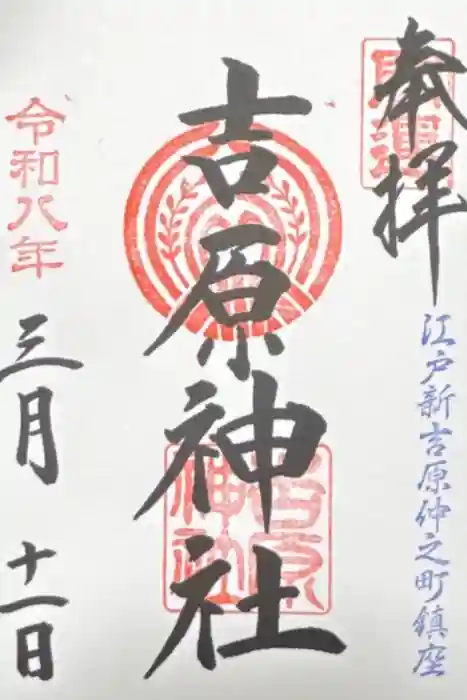 奉拝
開運
江戸新吉原仲之町鎮座
吉原神社
吉原神社
令和八年
三月十一日